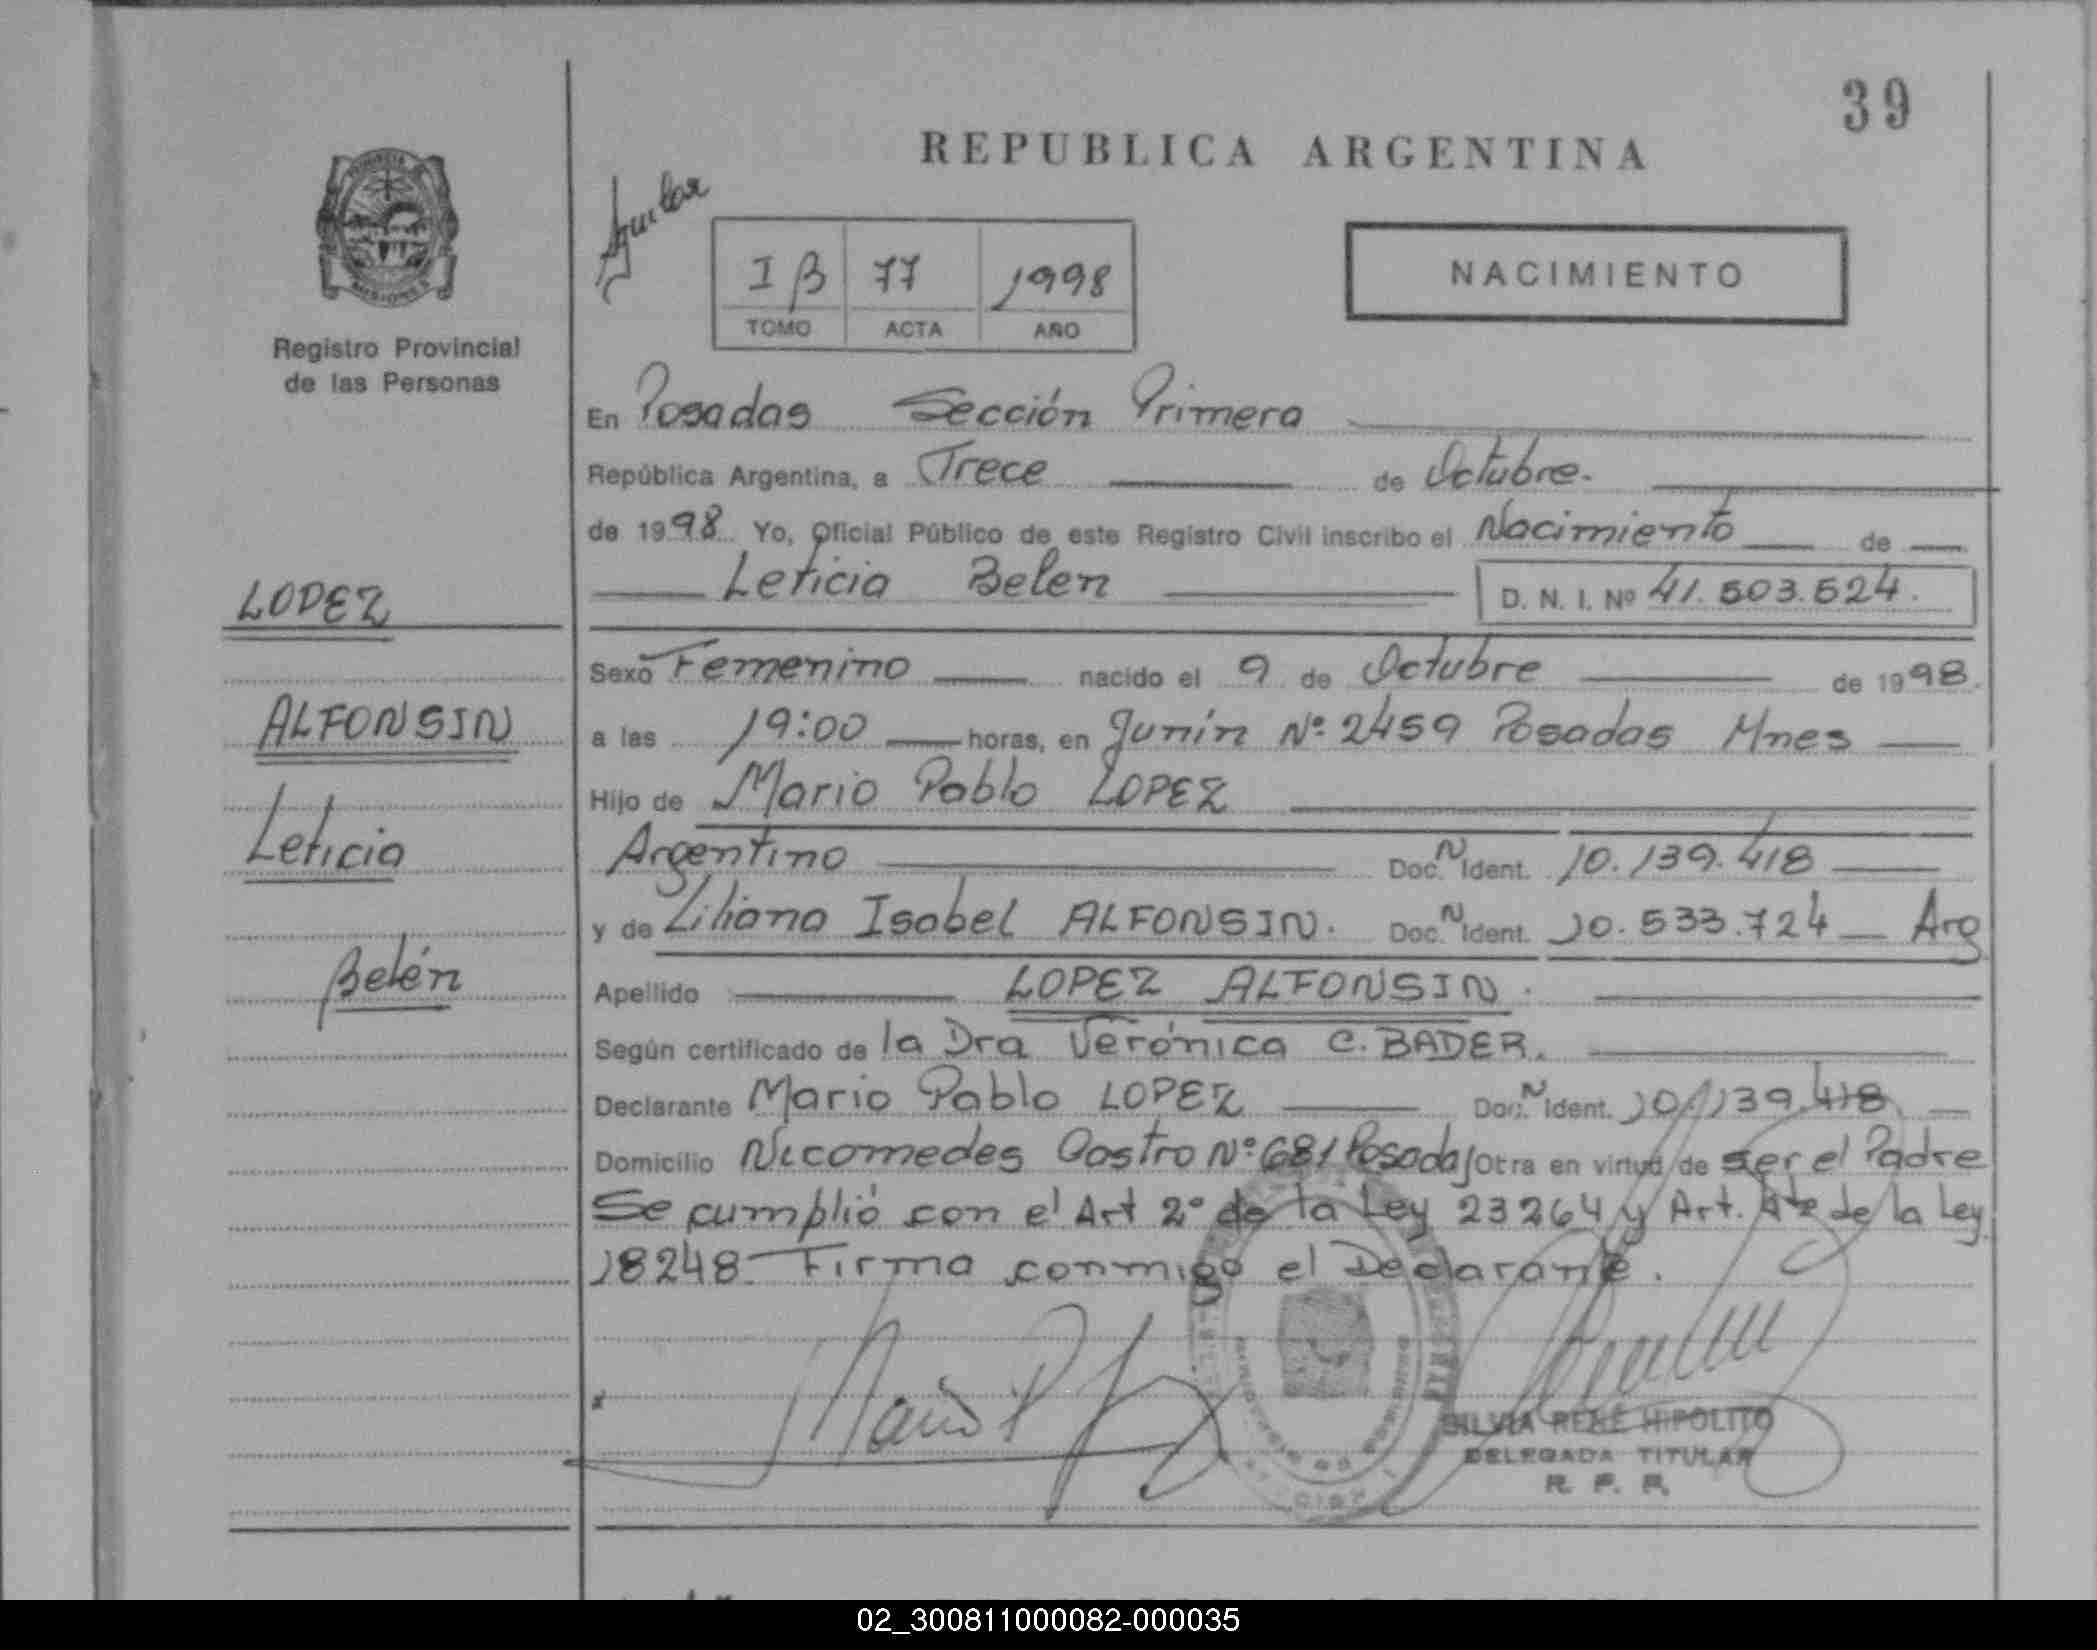 39
REPUBLICA ARGENTINA
Aguilar
I B 77 1998
TOMO ACTA AÑO
NACIMIENTO
MISIONES
Registro Provincial
de las Personas
LOPEZ
ALFONSIN
Leticia
Belén
En Posadas Sección Primera
República Argentina, a Trece de Octubre.
de 1998 Yo, Oficial Público de este Registro Civil inscribo el Nacimiento de
Leticia Belen D. N. I. Nº 41.503.524.
Sexo Femenino nacido el 9 de Octubre de 1998.
a las 19:00 horas, en Junín Nº 2459 Posadas Mnes
Hijo de Mario Pablo LOPEZ
Argentino Doc. N Ident. 10.139.418
y de Liliana Isabel ALFONSIN. Doc. N Ident. 10.533.724 Arg
Apellido LOPEZ ALFONSIN.
Según certificado de la Dra Verónica C. BADER.
Declarante Mario Pablo LOPEZ Doc. N Ident. 10.139.418
Domicilio Nicomedes Castro Nº 681 Posadas Otra en virtud de ser el Padre
Se cumplió con el Art 2º de la Ley 23264 y Art. 4te de la Ley
18248- Firma conmigo el Declarante.
Mario P
SILVIA RENÉ HIPOLITO
DELEGADA TITULAR
R. P. P.
02_300811000082-000035